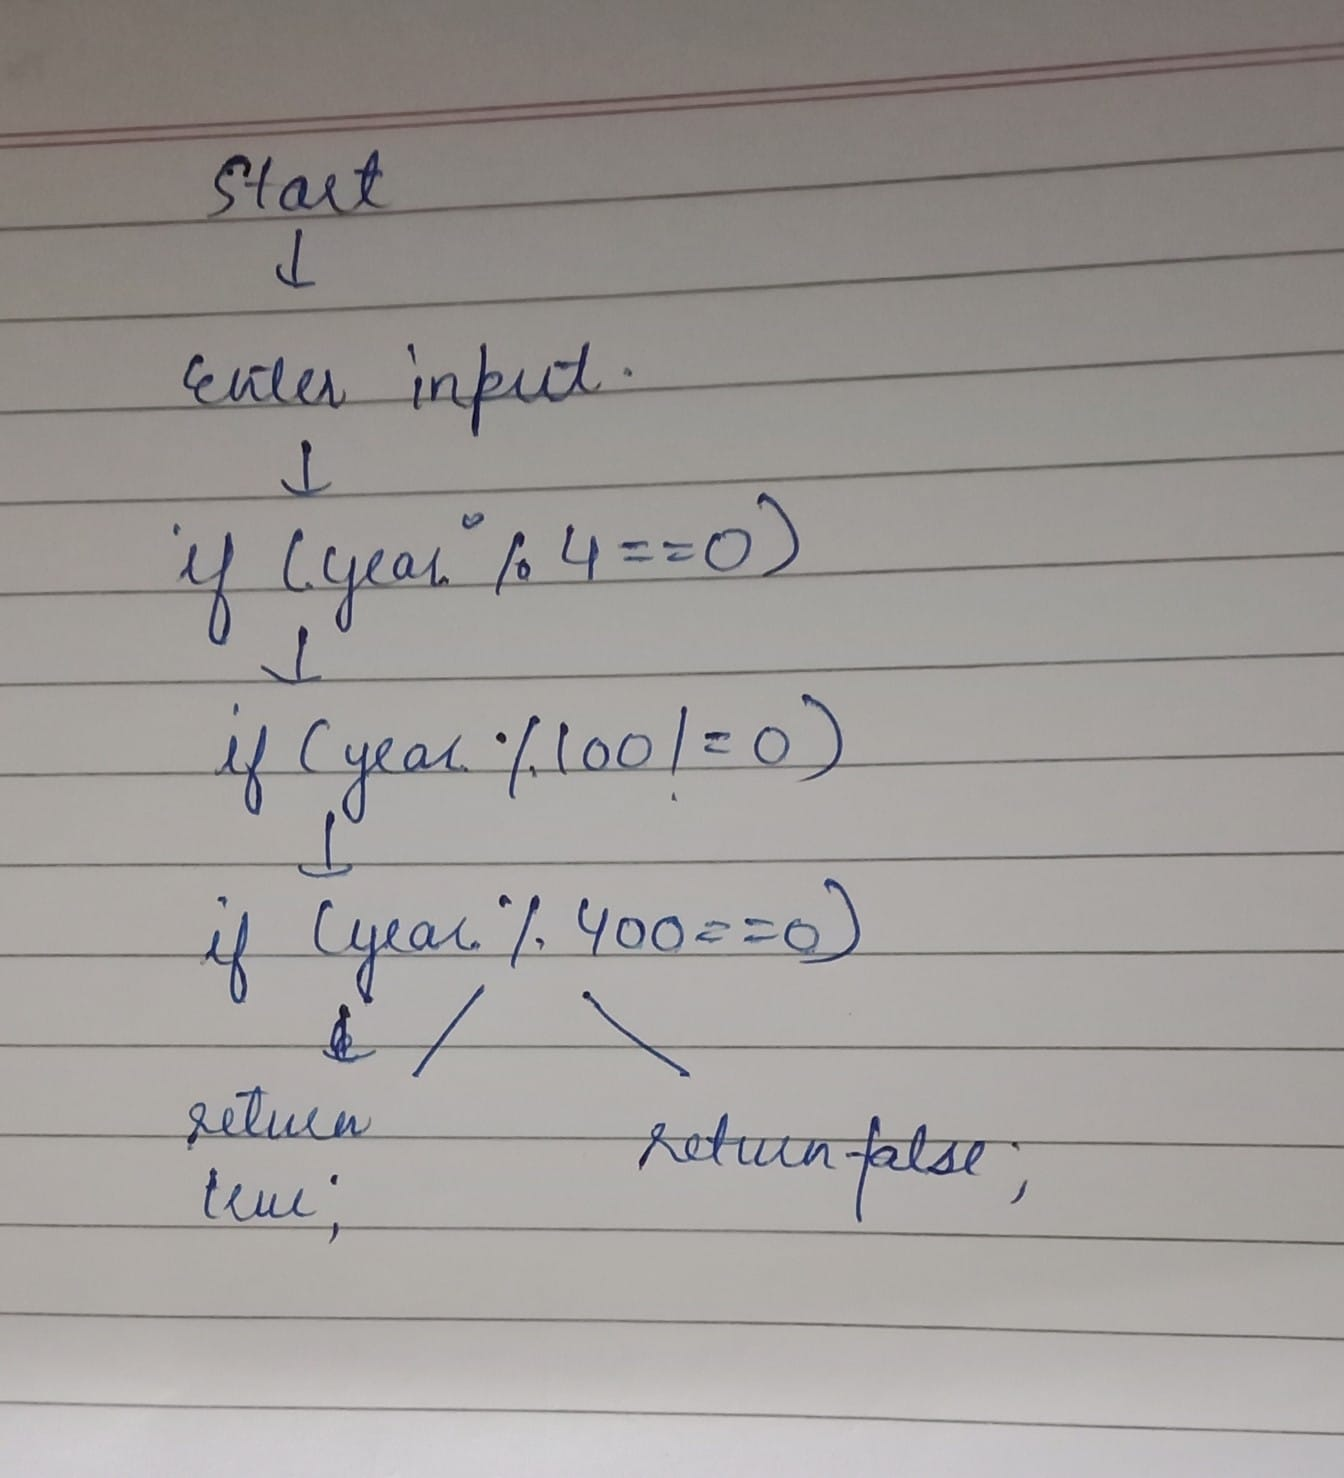 Start
↓
Enter input.
↓
if (year % 4 == 0)
↓
if (year % 100 != 0)
↓
if (year % 400 == 0)
return return false;
true;